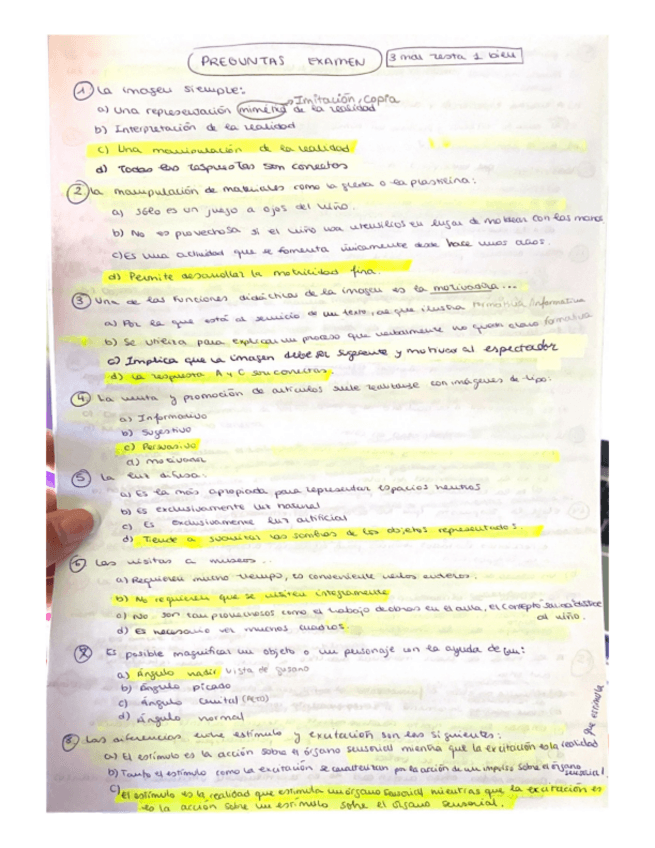 PREGUNTAS EXAMEN
3 mal resta 1 bien
1 La imagen siempre:
Imitación, copia
a) Una representación mimética de la realidad
b) Interpretación de la realidad
c) Una manipulación de la realidad
d) Todas las respuestas son correctas
2 La manipulación de materiales como la o la plastilina:
a) Sólo es un juego a ojos del niño.
b) No es provechosa si el niño usa utensilios en lugar de moldear con las manos
c) Es una actividad que se fomenta únicamente desde hace unos años.
d) Permite desarrollar la motricidad fina.
3 Una de las funciones didácticas de la imagen es la motivadora...
a) Por la que está al servicio de un texto, al que ilustra formativa/informativa
b) Se utiliza para explicar un proceso que verbalmente no queda claro formativa
c) Implica que la imagen debe ser sugerente y motivar al espectador
d) La respuesta A y C son correctas.
4. La venta y promoción de artículos suele realizarse con imágenes de tipo:
a) Informativo
b) Sugestivo
c) Persuasivo
d) motivador
5 La luz difusa:
a) Es la más apropiada para representar espacios neutros
b) Es exclusivamente luz natural
c) Es exclusivamente luz artificial
d) Tiende a suavizar las sombras de los objetos representados.
6 Las visitas a museos...
a) Requieren mucho tiempo, es conveniente verlos enteros.
b) No requieren que se visiten íntegramente
c) No son tan provechosos como el trabajo de obras en el aula, el concepto
al niño.
d) Es necesario ver muchos cuadros.
Es posible magnificar un objeto o un personaje con la ayuda de un:
a) Ángulo nadir vista de gusano
b) Ángulo picado
c) Ángulo cenital (Alto)
d) Ángulo normal
8. Las diferencias entre estímulo y excitación son las siguientes:
a) El estímulo es la acción sobre el órgano sensorial mientra que la excitación es la realidad
que estimula
b) Tanto el estímulo como la excitación se caracterizan por la acción de un impulso sobre el órgano
sensorial.
c) El estímulo es la realidad que estimula un órgano sensorial mientras que la excitación es
es la acción sobre un estímulo sobre el órgano sensorial.